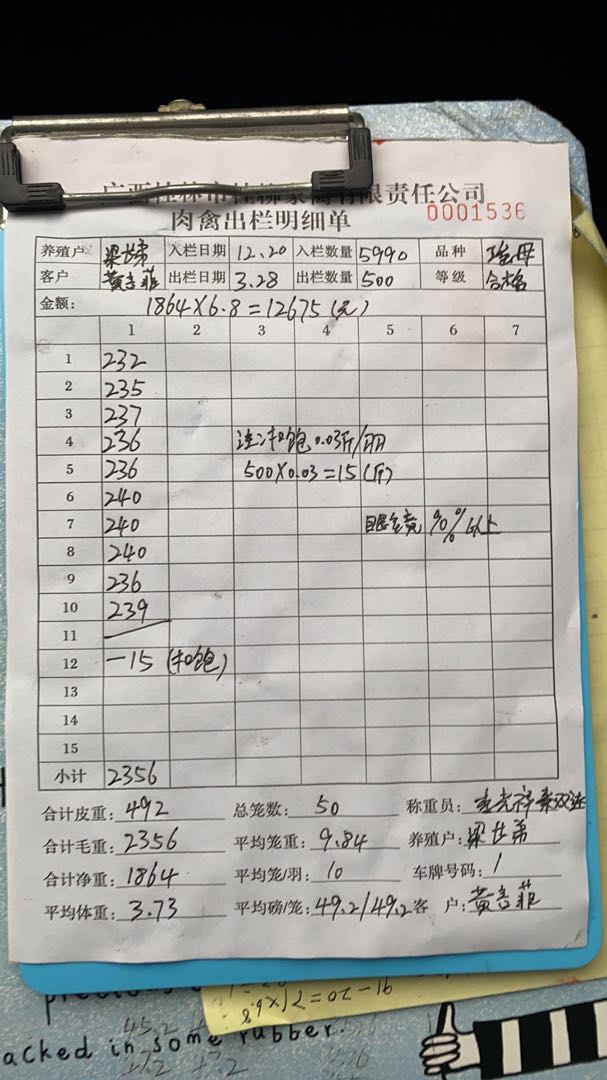 广西桂林市桂柳家禽有限责任公司
肉禽出栏明细单 0001536
养殖户 梁仕弟 入栏日期 12.20 入栏数量 5990 品种
客户 黄言菲 出栏日期 3.28 出栏数量 500 等级 合格
金额: 1864×6.8=12675(元)
1 2 3 4 5 6 7
1 232
2 235
3 237
4 236 注:扣饱0.03斤/羽
5 236 500×0.03=15(斤)
6 240
7 240 眼全亮 90%以上
8 240
9 236
10 239
11
12 -15 (扣饱)
13
14
15
小计 2356
合计皮重: 492 总笼数: 50 称重员:
合计毛重: 2356 平均笼重: 9.84 养殖户: 梁仕弟
合计净重: 1864 平均笼/羽: 10 车牌号码: 1
平均体重: 3.73 平均磅/笼: 49.2/49.2 客 户: 黄言菲
acked in some rubber.